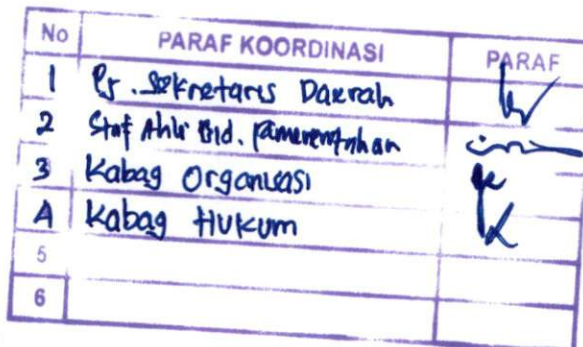 No PARAF KOORDINASI PARAF
1 Pj. Sekretaris Daerah
2 Staf Ahli Bid. Pemerintahan
3 Kabag Organisasi
4 Kabag Hukum
5
6